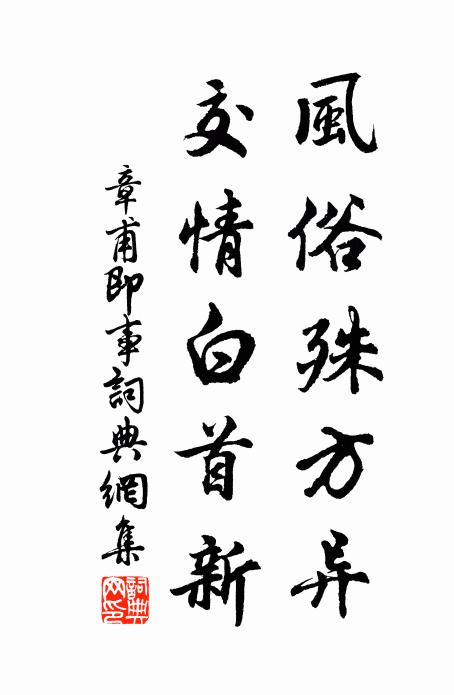 風俗殊方异
交情白首新
章甫即事詞典網集
詞典網印